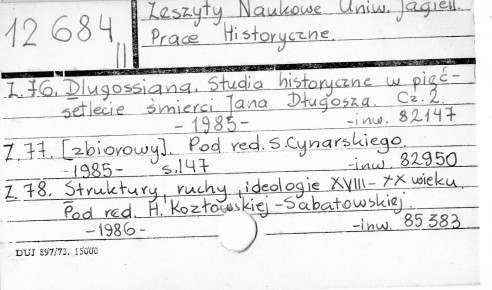 12 684
II
Zeszyty Naukowe Uniw. Jagiell.
Prace Historyczne.
Z.76. Dlugossiana. Studia historyczne w pięć-
setlecie śmierci Jana Długosza. Cz. 2.
- 1985 - -inw. 82147
Z.77. [zbiorowy]. Pod red. S. Cynarskiego.
-1985- s.147 -inw. 82950
Z.78. Struktury, ruchy, ideologie XVIII-XX wieku.
Pod red. H. Kozłowskiej-Sabatowskiej.
-1986- -inw. 85383
DUJ 897/73. 15000